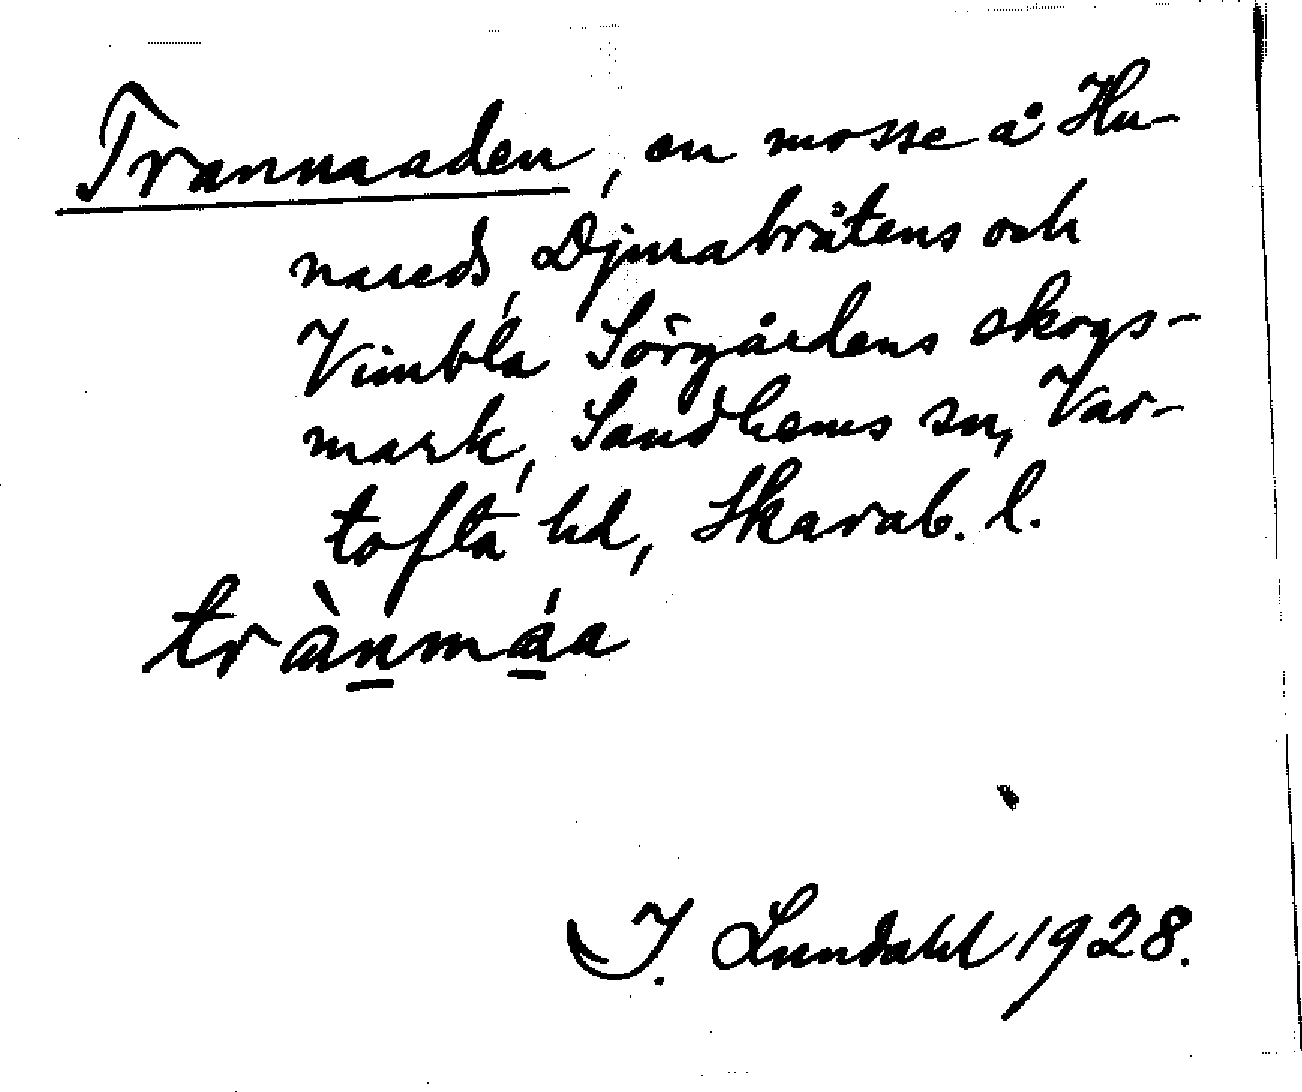 Trannaaden, en mosse å Hu-
nareds, Djurabråtens och
Vimbla Sörgårdens skogs-
mark, Sandhems sn, Var-
tofta hd, Skarab. l.
trànmáa
I. Lundahl 1928.